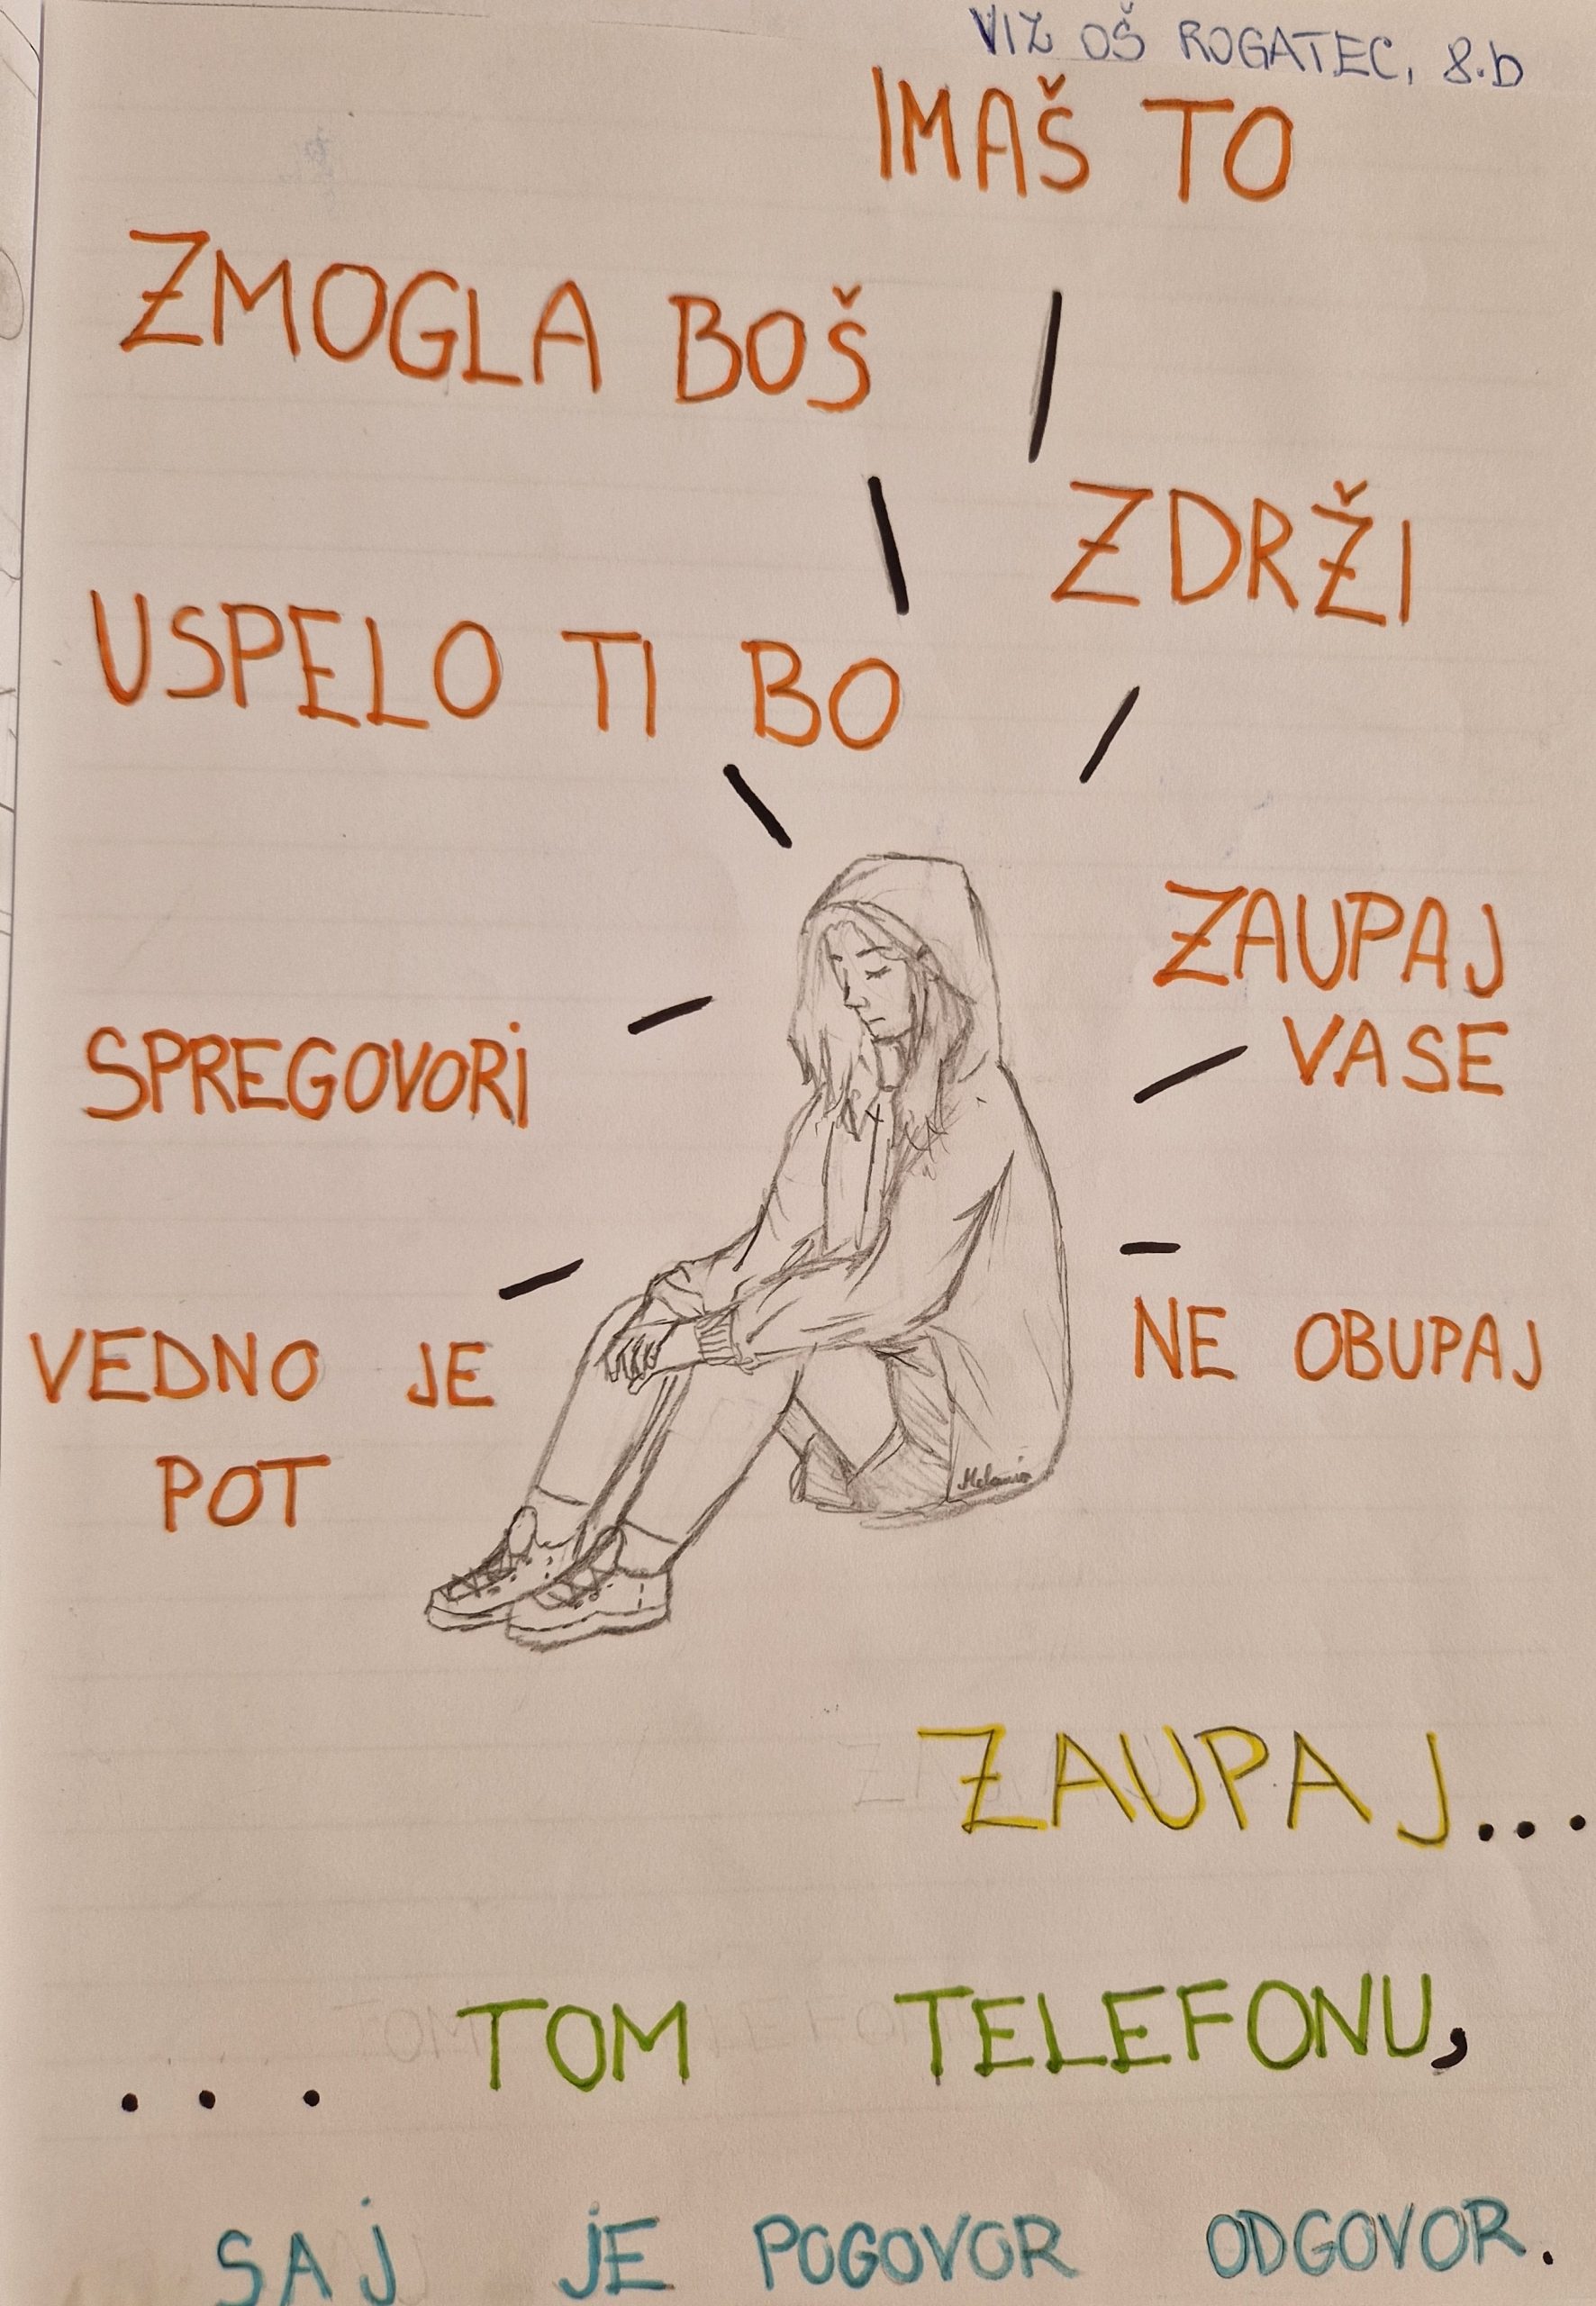 VIZ OŠ ROGATEC, 8.b
IMAŠ TO
ZMOGLA BOŠ
ZDRŽI
USPELO TI BO
ZAUPAJ
VASE
SPREGOVORI
NE OBUPAJ
VEDNO JE
POT
Melania
ZAUPAJ...
... TOM TELEFONU,
SAJ JE POGOVOR ODGOVOR.